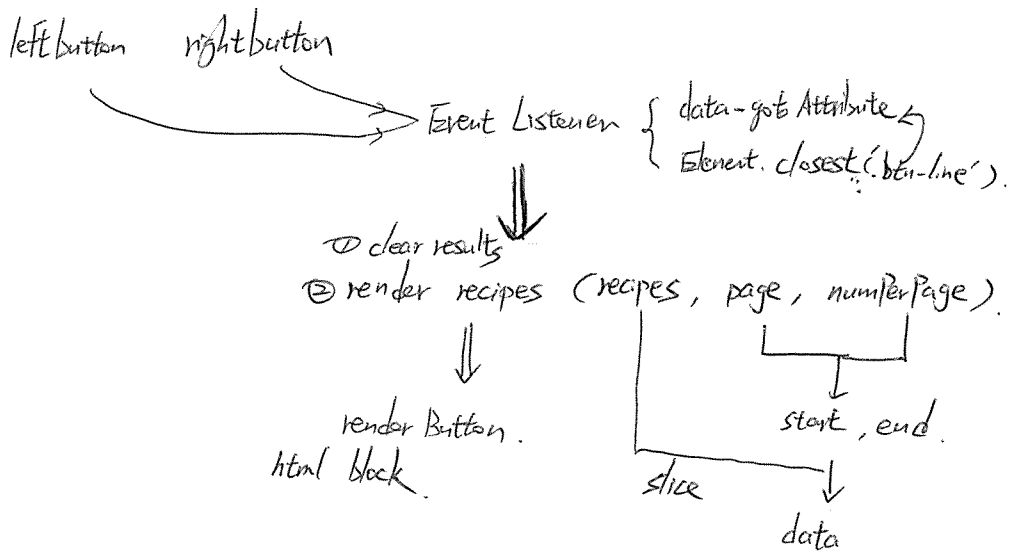 left button right button
Event Listener { data-goto Attribute
Element.closest('.btn-line').
① clear results
② render recipes (recipes, page, numPerPage).
render Button.
html block.
start, end.
slice
data